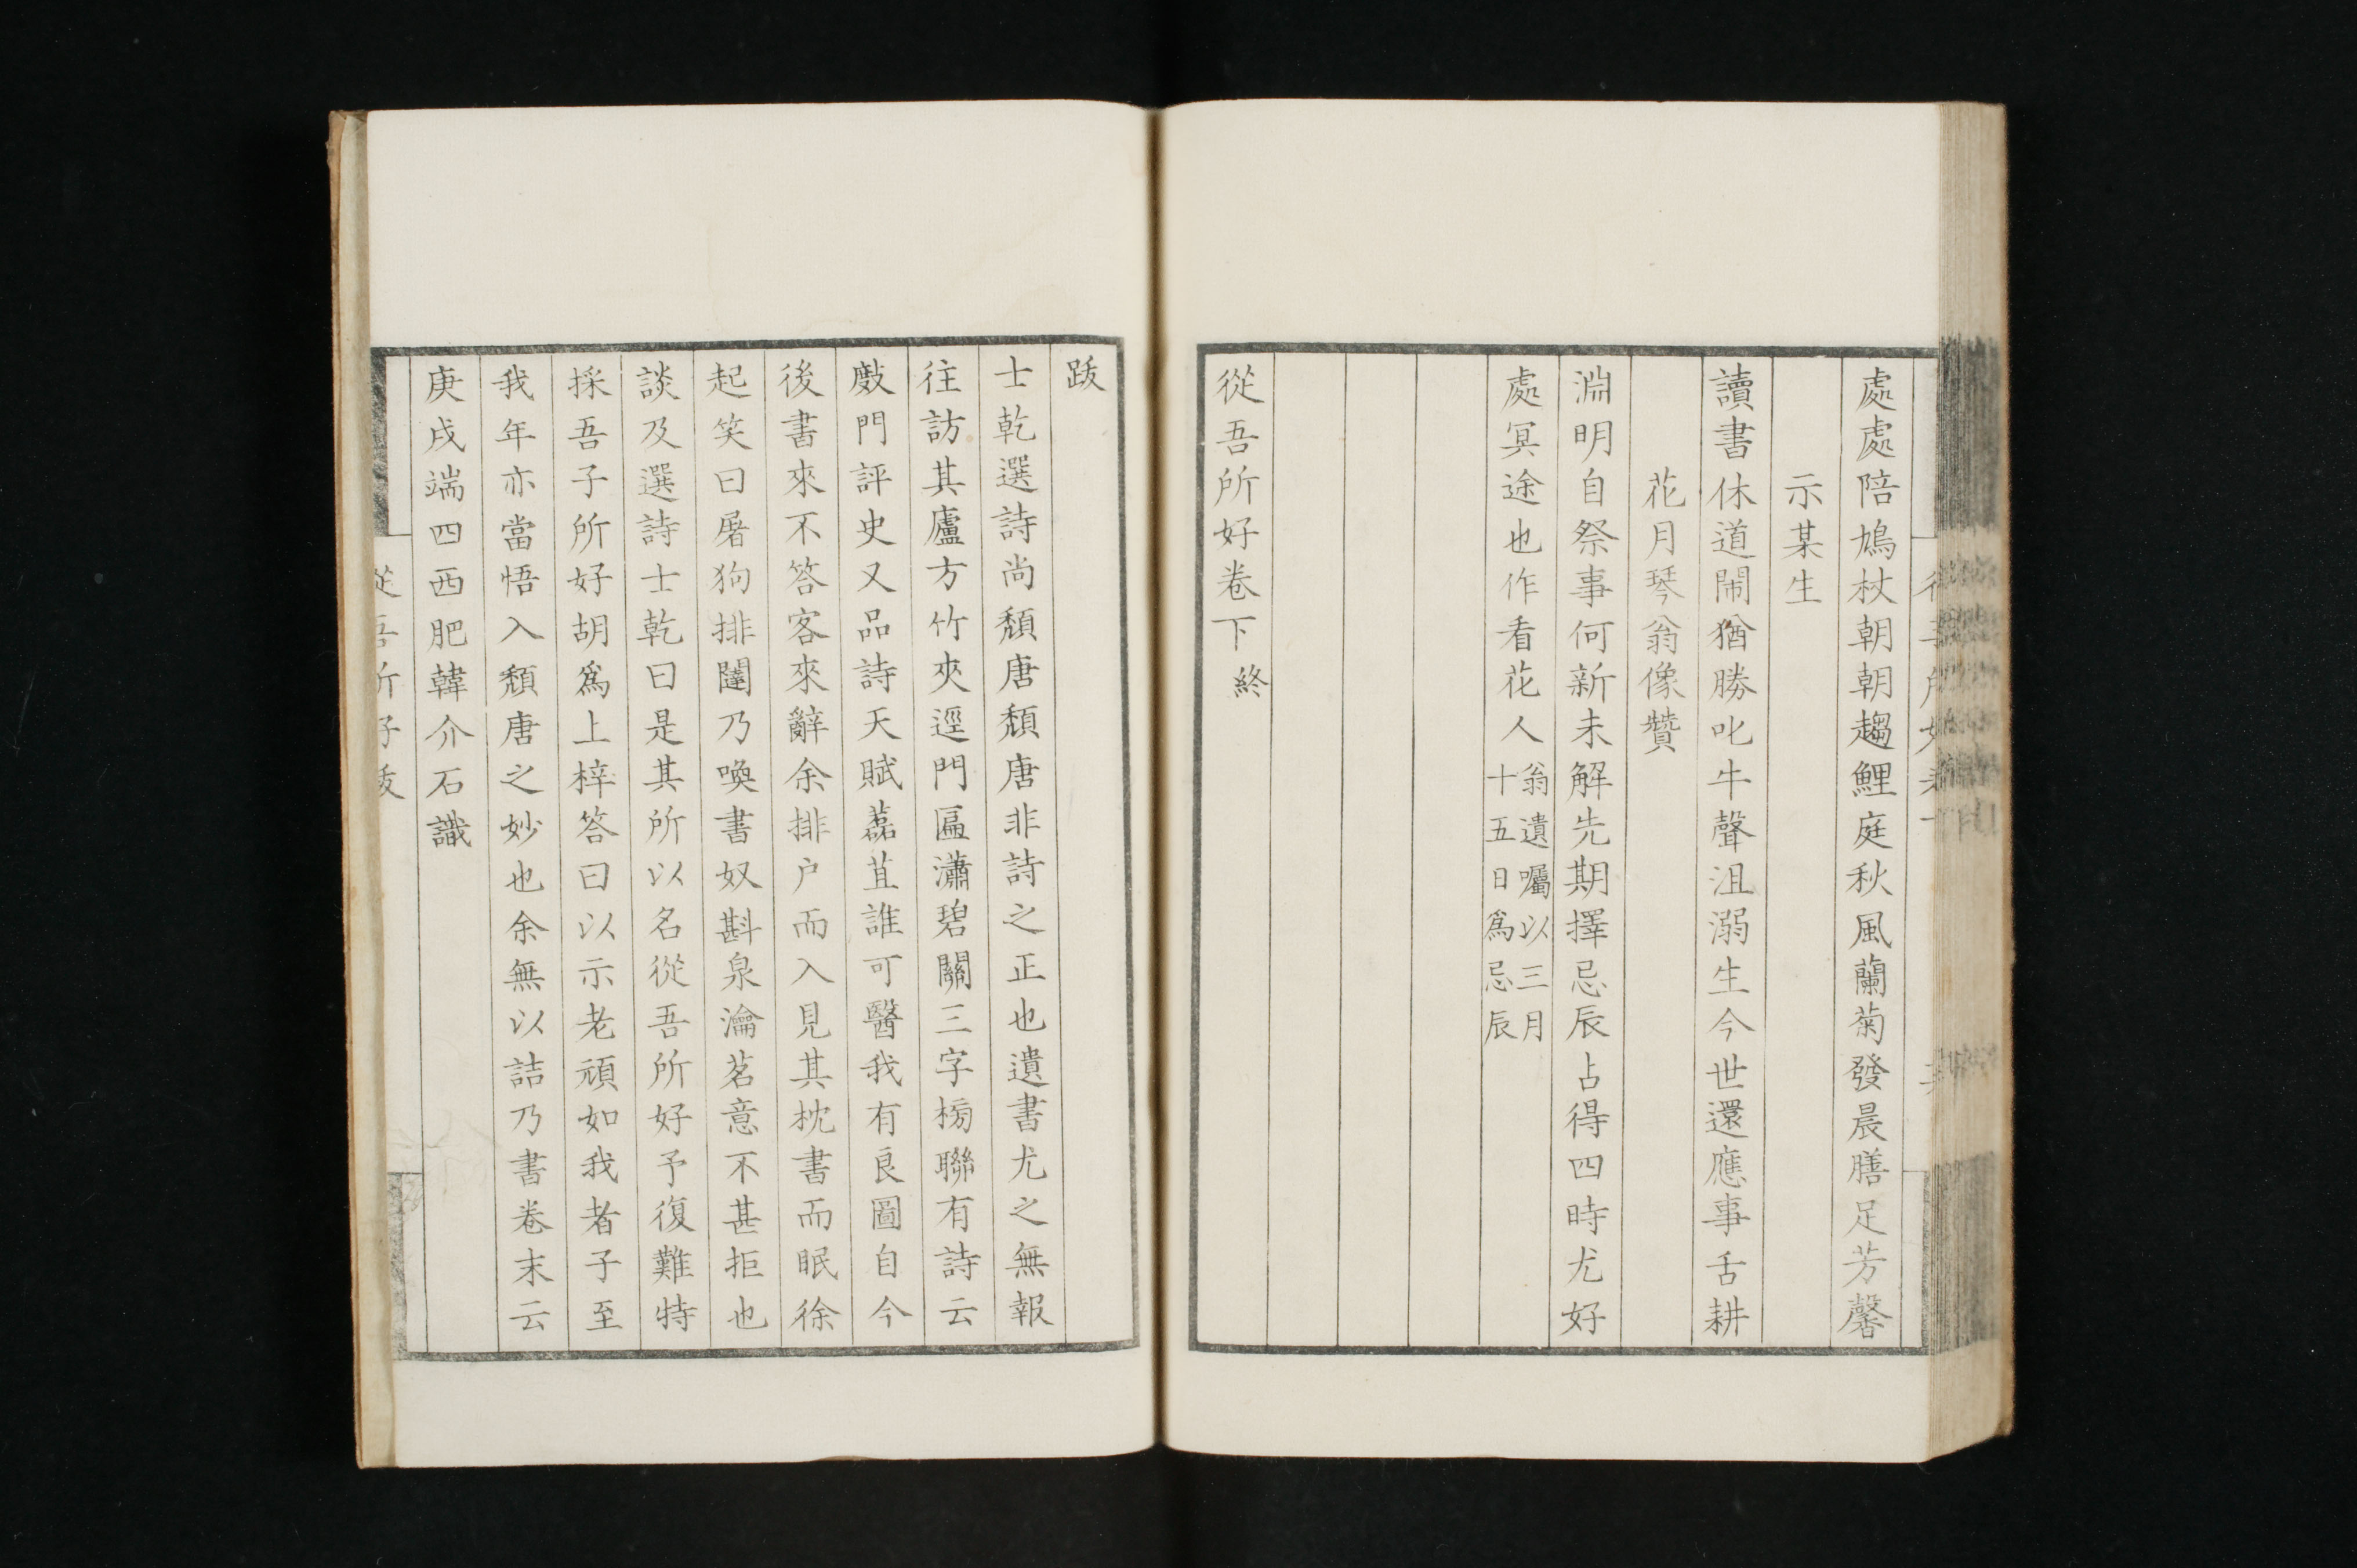 處處陪鳩杖朝朝趨鯉庭秋風蘭菊發晨膳足芳馨
示某生
讀書休道閙猶勝叱牛聲沮溺生今世還應事舌耕
花月琴翁像贊
淵明自祭事何新未解先期擇忌辰占得四時尤好
處冥途也作看花人翁遺囑以三月
十五日爲忌辰
從吾所好卷下終
跋
士乾選詩尚頽唐頽唐非詩之正也遺書尤之無報
往訪其廬方竹夾逕門匾瀟碧關三字榜聯有詩云
敲門評史又品詩天賦藞苴誰可醫我有良圖自今
後書來不答客來辭余排户而入見其枕書而眠徐
起笑曰屠狗排闥乃喚書奴斟泉瀹茗意不甚拒也
談及選詩士乾曰是其所以名從吾所好予復難特
採吾子所好胡爲上梓答曰以示老頑如我者子至
我年亦當悟入頽唐之妙也余無以詰乃書卷末云
庚戌端四西肥韓介石識
從吾所好跋